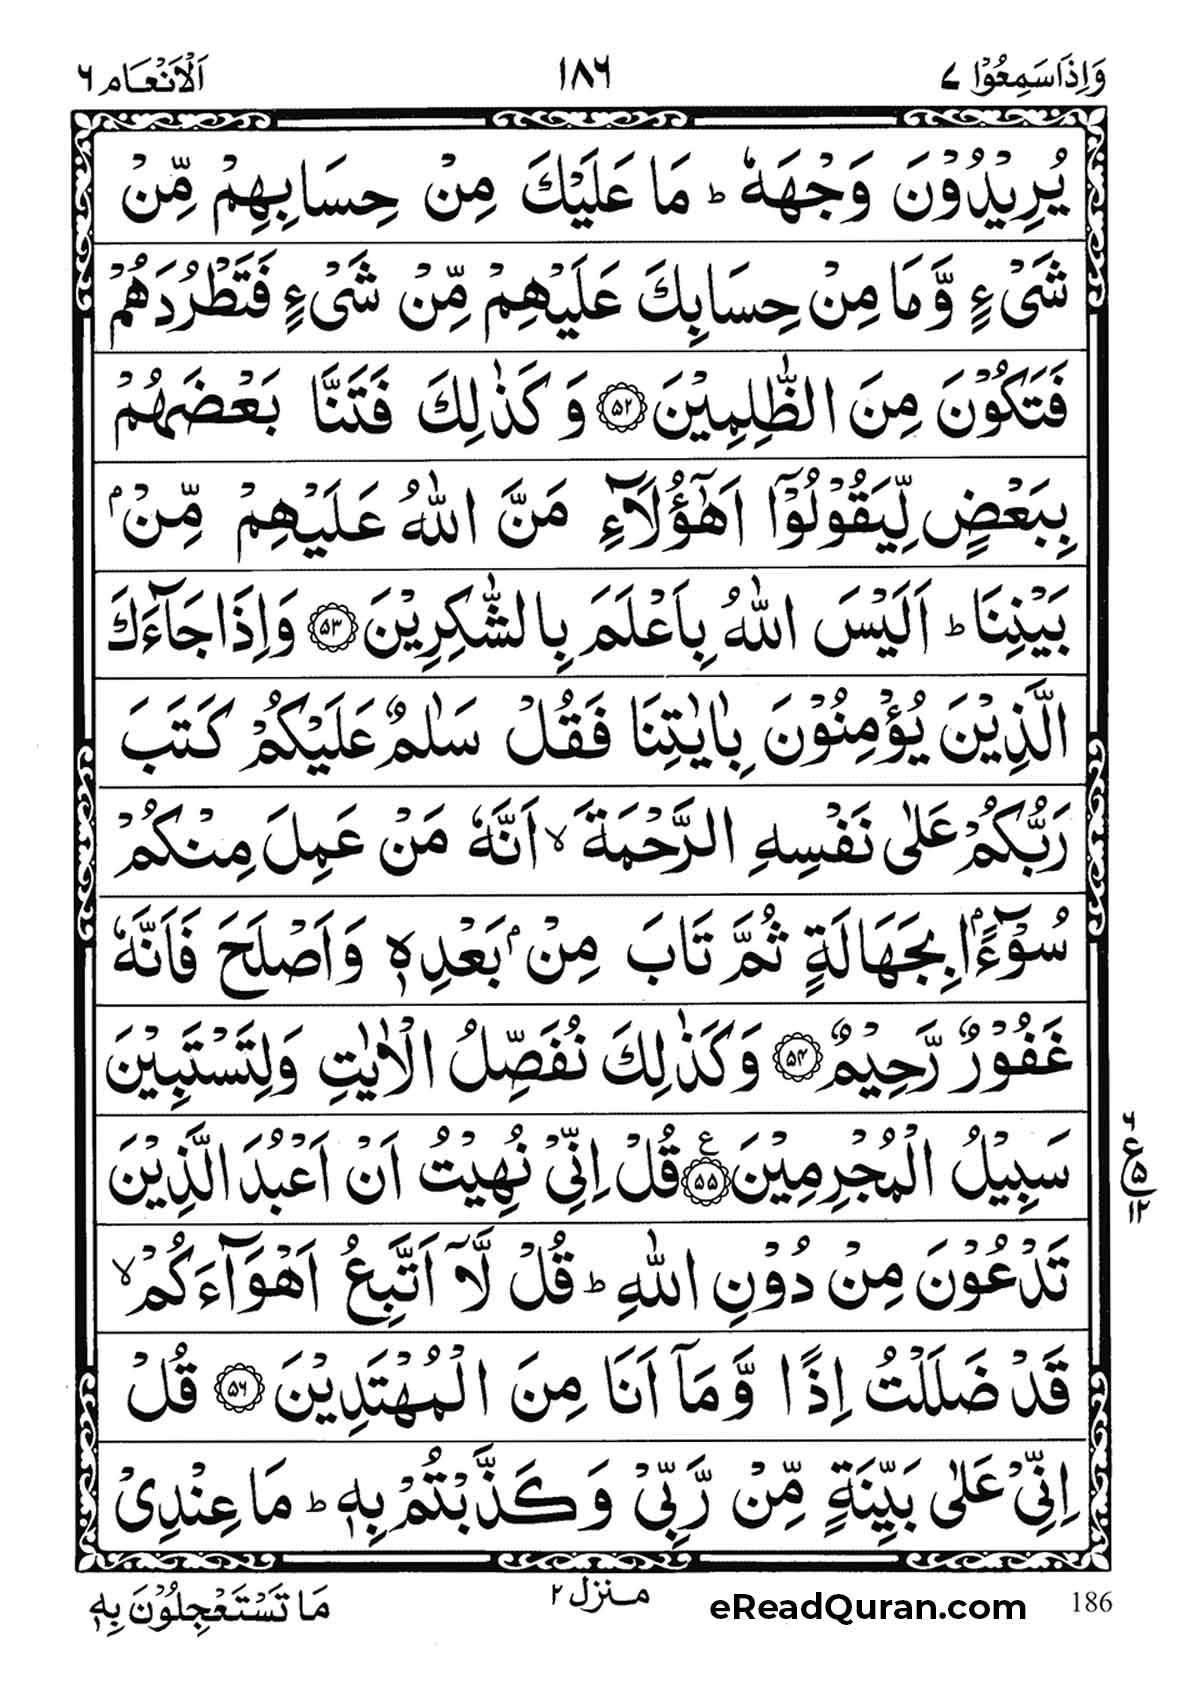 وَاِذَا سَمِعُوْا ۷ ۱۸۶ اَلْاَنْعَام ۶
يُرِيْدُوْنَ وَجْهَهٗ ؕ مَا عَلَيْكَ مِنْ حِسَابِهِمْ مِّنْ
شَیْءٍ وَّمَا مِنْ حِسَابِكَ عَلَيْهِمْ مِّنْ شَیْءٍ فَتَطْرُدَهُمْ
فَتَكُوْنَ مِنَ الظّٰلِمِيْنَ ﴿۵۲﴾ وَكَذٰلِكَ فَتَنَّا بَعْضَهُمْ
بِبَعْضٍ لِّيَقُوْلُوْۤا اَهٰۤؤُلَآءِ مَنَّ اللّٰهُ عَلَيْهِمْ مِّنْۢ
بَيْنِنَا ؕ اَلَيْسَ اللّٰهُ بِاَعْلَمَ بِالشّٰكِرِيْنَ ﴿۵۳﴾ وَاِذَا جَآءَكَ
الَّذِيْنَ يُؤْمِنُوْنَ بِاٰيٰتِنَا فَقُلْ سَلٰمٌ عَلَيْكُمْ كَتَبَ
رَبُّكُمْ عَلٰى نَفْسِهِ الرَّحْمَةَ ۙ اَنَّهٗ مَنْ عَمِلَ مِنْكُمْ
سُوْٓءًۢا بِجَهَالَةٍ ثُمَّ تَابَ مِنْۢ بَعْدِهٖ وَاَصْلَحَ فَاَنَّهٗ
غَفُوْرٌ رَّحِيْمٌ ﴿۵۴﴾ وَكَذٰلِكَ نُفَصِّلُ الْاٰيٰتِ وَلِتَسْتَبِيْنَ
سَبِيْلُ الْمُجْرِمِيْنَ ﴿۵۵﴾ ع قُلْ اِنِّیْ نُهِيْتُ اَنْ اَعْبُدَ الَّذِيْنَ
۶ ع ۵ ۱۲
تَدْعُوْنَ مِنْ دُوْنِ اللّٰهِ ؕ قُلْ لَّاۤ اَتَّبِعُ اَهْوَآءَكُمْ ۙ
قَدْ ضَلَلْتُ اِذًا وَّمَاۤ اَنَا مِنَ الْمُهْتَدِيْنَ ﴿۵۶﴾ قُلْ
اِنِّیْ عَلٰى بَيِّنَةٍ مِّنْ رَّبِّیْ وَكَذَّبْتُمْ بِهٖ ؕ مَا عِنْدِیْ
مَا تَسْتَعْجِلُوْنَ بِهٖ منزل ۲ eReadQuran.com 186